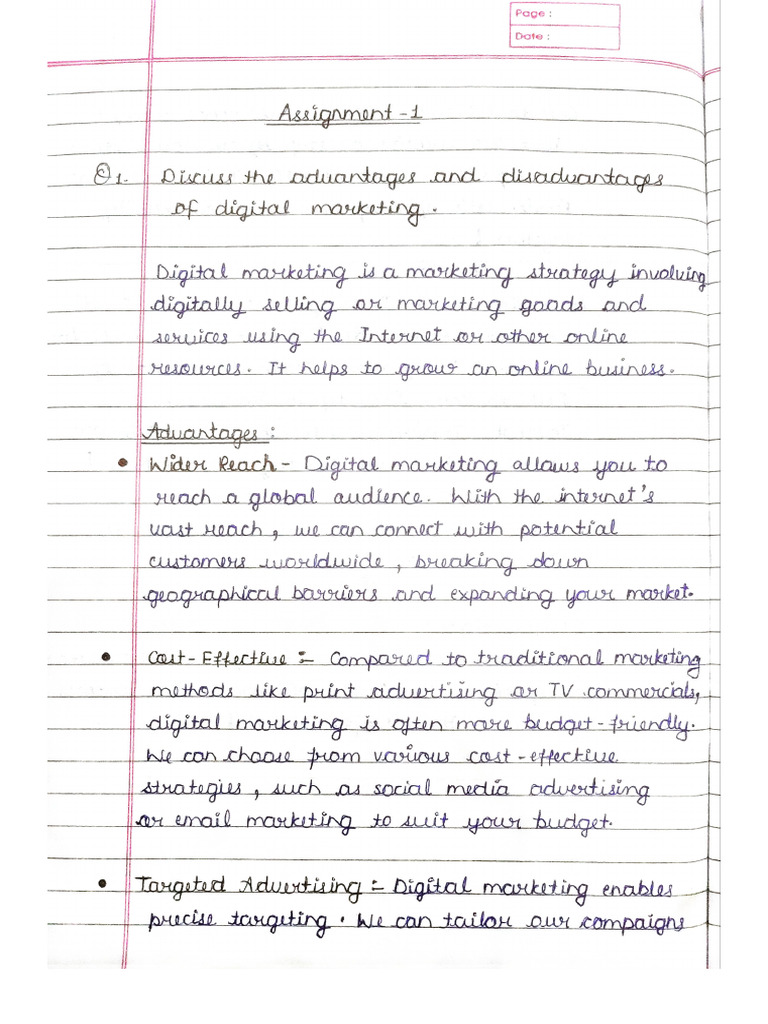 Page :
Date :
Assignment - 1
Q1. Discuss the advantages and disadvantages
of digital marketing.
Digital marketing is a marketing strategy involving
digitally selling or marketing goods and
services using the Internet or other online
resources. It helps to grow an online business.
Advantages :
• Wider Reach - Digital marketing allows you to
reach a global audience. With the internet's
vast reach, we can connect with potential
customers worldwide, breaking down
geographical barriers and expanding your market.
• Cost-Effective :- Compared to traditional marketing
methods like print advertising or TV commercials,
digital marketing is often more budget-friendly.
We can choose from various cost-effective
strategies, such as social media advertising
or email marketing to suit your budget.
• Targeted Advertising :- Digital marketing enables
precise targeting. We can tailor our compaigns